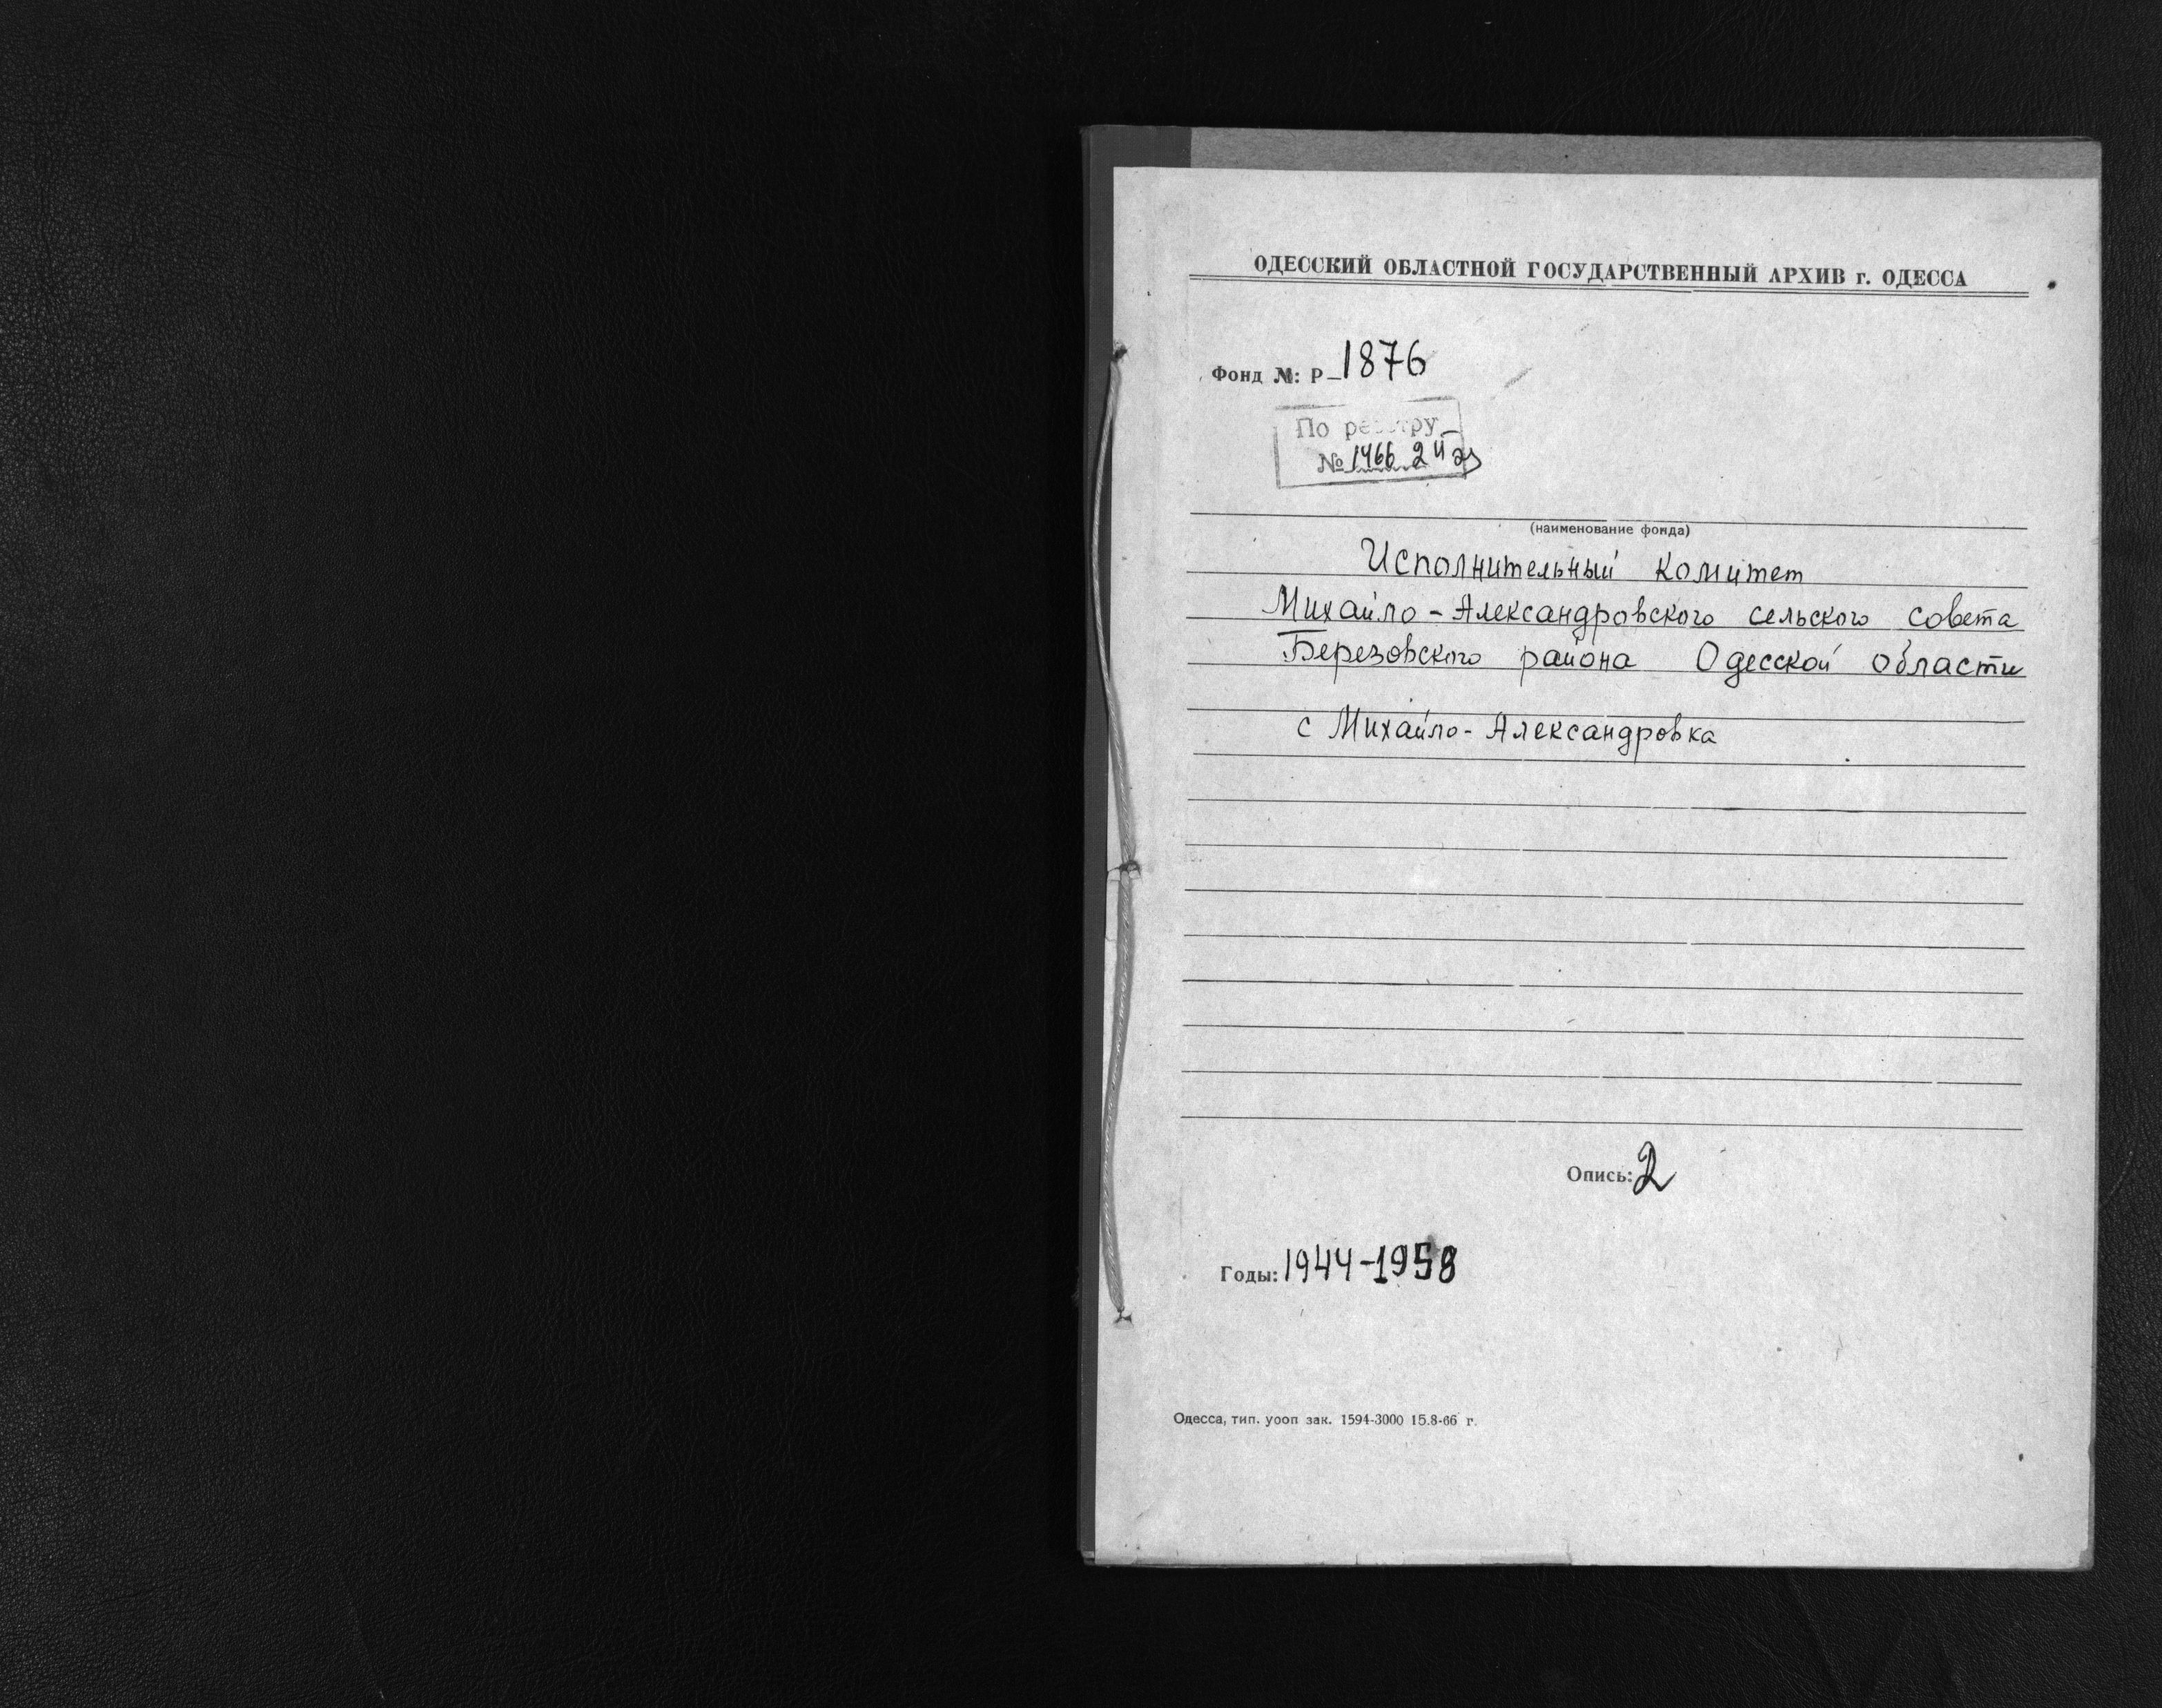 ОДЕССКИЙ ОБЛАСТНОЙ ГОСУДАРСТВЕННЫЙ АРХИВ г. ОДЕССА
Фонд №: Р-1876
По реестру
№ 1466 2
(наименование фонда)
Исполнительный комитет
Михайло-Александровского сельского совета
Березовского района Одесской области
с Михайло-Александровка
Опись: 2
Годы: 1944-1958
Одесса, тип. уооп зак. 1594-3000 15.8-66 г.